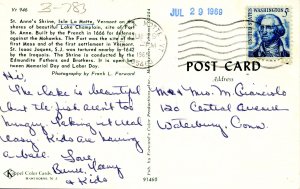 Vt 946
JUL 29 1968
St. Anne's Shrine, Isle La Motte, Vermont on the
shores of beautiful Lake Champlain, site of Fort
St. Anne. Built by the French in 1666 for defense
against the Mohawks. The Fort was the site of the
First Mass and of the first settlement in Vermont.
St. Isaac Jogues, S.J. was tortured nearby in 1642
by the Iroquois. The Shrine is conducted by the
Edmundite Fathers and Brothers. It is open be-
tween Memorial Day and Labor Day.
Photography by Frank L. Forward
POST CARD
Address
Hi,
The lake is beautiful
but the fish aren't too
hungry. Taking it real
easy. Kids are having
a ball.
Love,
& Kids
Mr & Mrs. M Cianciolo
120 Central Avenue
Waterbury, Conn.
Koppel Color Cards
HAWTHORNE, N. J.
91460